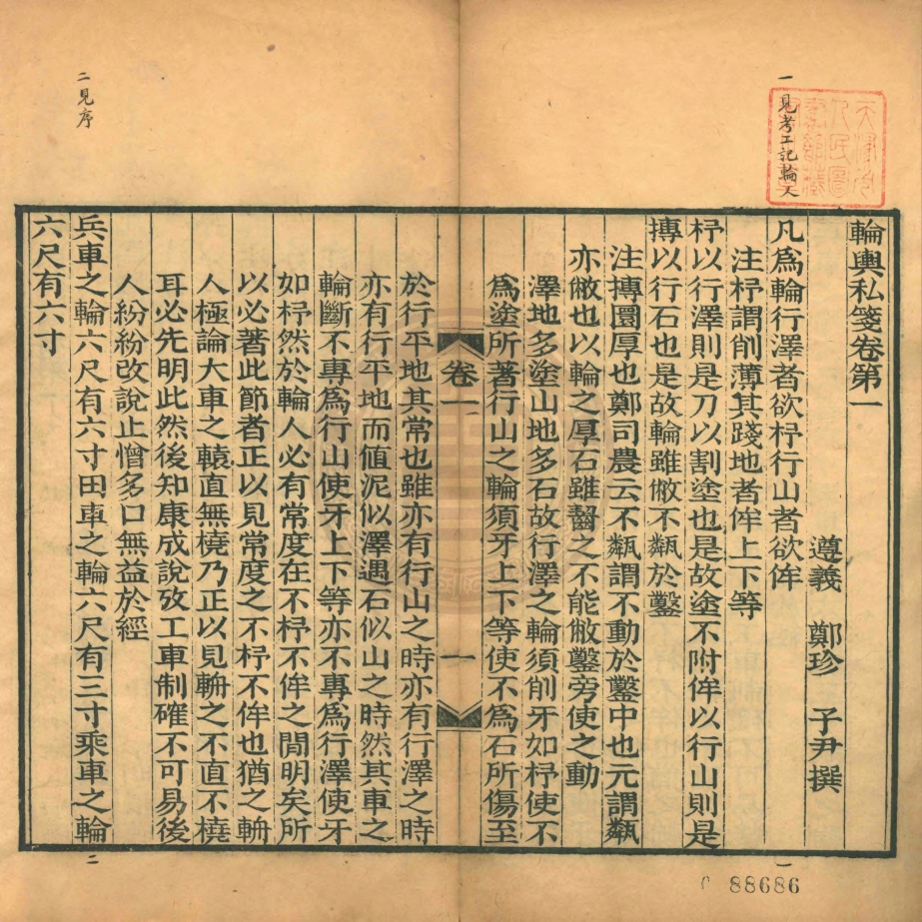 一見考工記輪人
輪輿私箋卷第一
遵義 鄭珍 子尹撰
凡為輪行澤者欲杼行山者欲侔
注杼謂削薄其踐地者侔上下等
杼以行澤則是刀以割塗也是故塗不附侔以行山則是
摶以行石也是故輪雖敝不甐於鑿
注摶圜厚也鄭司農云不甐謂不動於鑿中也元謂甐
亦敝也以輪之厚石雖齧之不能敝鑿旁使之動
澤地多塗山地多石故行澤之輪須削牙如杼使不
為塗所著行山之輪須牙上下等使不為石所傷至
卷一
一
於行平地其常也雖亦有行山之時亦有行澤之時
亦有行平地而值泥似澤遇石似山之時然其車之
輪斷不專為行山使牙上下等亦不專為行澤使牙
如杼然於輪人必有常度在不杼不侔之間明矣所
以必著此節者正以見常度之不杼不侔也猶之輈
人極論大車之轅直無橈乃正以見輈之不直不橈
耳必先明此然後知康成說攷工車制確不可易後
人紛紛改說止憎多口無益於經
兵車之輪六尺有六寸田車之輪六尺有三寸乘車之輪
六尺有六寸
二見序
一
二
88686